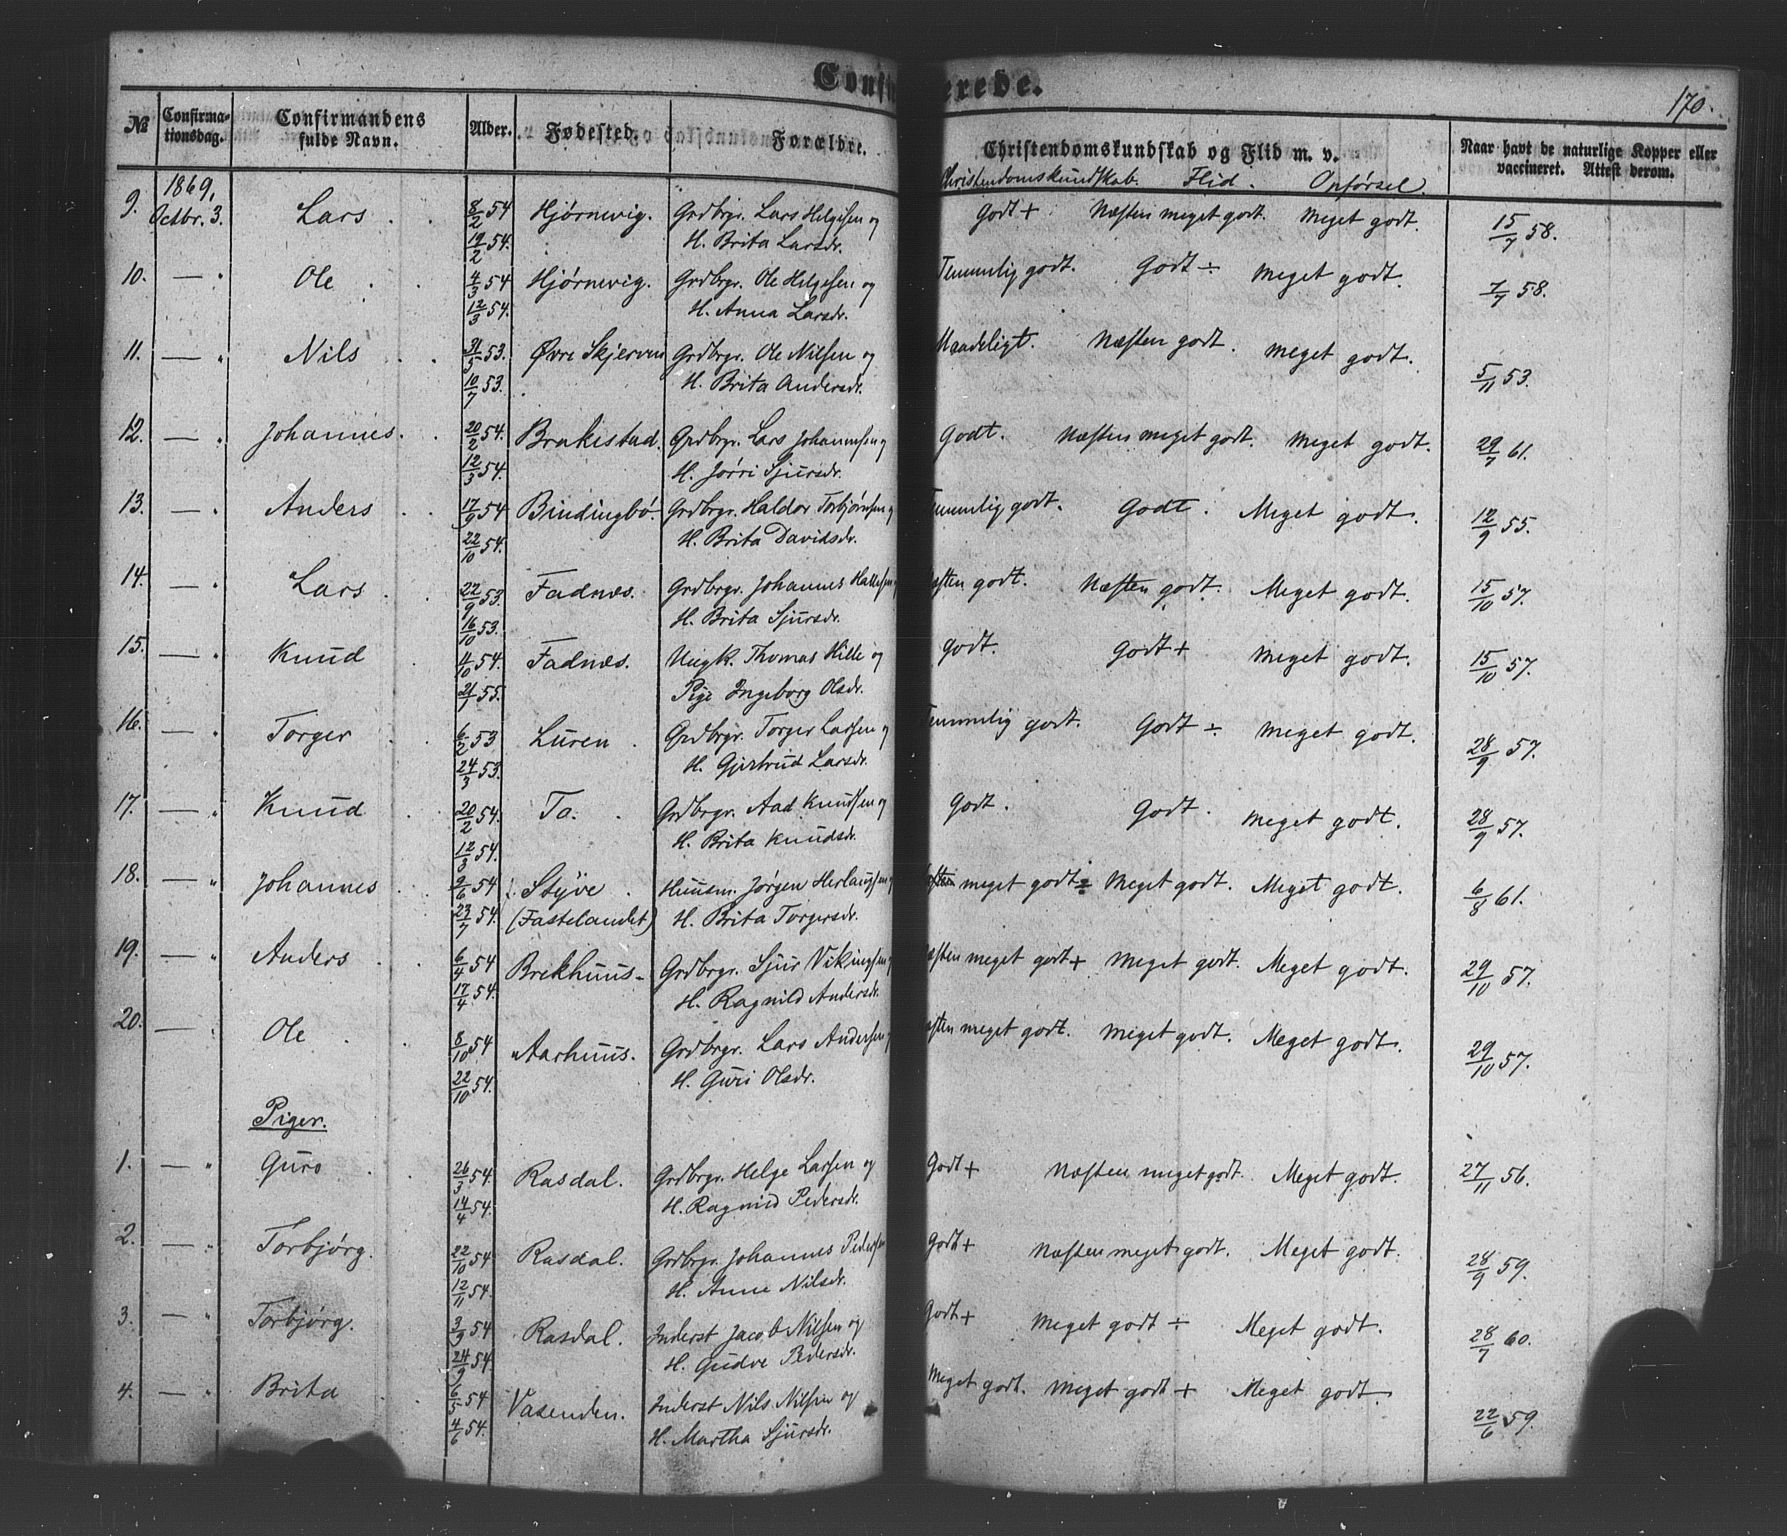 Confi erede.
170.
No Confirma-tionsdag. Confirmandens fulde Navn. Alder. Fødested. Forældre. Christendomskundskab og Flid m. v. Naar havt de naturlige Kopper eller vaccineret. Attest derom.
1869, Christendomskundskab. Flid. Opførsel.
9. Octbr. 3. Lars 8/2 54 Hjørnevig. Grdbrgr. Lars Helgesen og Godt + Næsten meget godt. Meget godt. 15/7 58.
19/2 54. H. Brita Larsdr.
10. — " Ole 4/3 54 Hjørnevig. Grdbrgr. Ole Helgesen og Temmelig godt. Godt ÷ Meget godt. 7/7 58.
12/3 54. H. Anna Larsdr.
11. — " Nils 31/5 53. Øvre Skjerven Grdbrgr. Ole Nilsen og Maadeligt. Næsten godt. Meget godt. 5/11 53.
10/7 53. H. Brita Andersdr.
12. — " Johannes. 20/2 54. Brakestad. Grdbrgr. Lars Johannesen og Godt. Næsten meget godt. Meget godt. 29/7 61.
12/3 54. H. Jørri Sjursdr.
13. — " Anders 17/9 54 Bindingbø. Grdbrgr. Haldor Torbjørnsen og Temmelig godt. Godt. Meget godt. 12/9 55.
22/10 54. H. Brita Davidsdr.
14. — " Lars 22/9 53. Fadnæs. Grdbrgr. Johannes Hallesen sten godt. Næsten godt. Meget godt. 15/10 57.
16/10 53. H. Brita Sjursdr.
15. — " Knud 4/10 54. Fadnæs. Ungk. Thomas Hille og godt. Godt + Meget godt. 15/10 57.
21/1 55. Pige Ingeborg Olsdr.
16. — " Torger 6/2 53 Luren. Grdbrgr. Torger Larsen og Temmelig godt. Godt ÷ Meget godt. 28/9 57.
24/3 53. H. Gjertrud Larsdr.
17. — " Knud 20/2 54. To. Grdbrgr. Aad Knudsen og Godt. Godt. Meget godt. 28/9 57.
12/3 54. H. Brita Knudsdr.
18. — " Johannes 9/6 54 Styve Huusm. Jørgen Herlaugsen meget godt ÷ Meget godt. Meget godt. 6/8 61.
23/7 54. (Fastelandet) H. Brita Torgersdr.
19. — " Anders 6/4 54 Brekhuus. Grdbrgr. Sjur Vikingsen sten meget godt + Meget godt. Meget godt. 29/10 57.
17/4 54. H. Ragnild Andersdr.
20. — " Ole 8/10 54 Aarhuus. Grdbrgr. Lars Andersen sten meget godt. Meget godt. Meget godt. 29/10 57.
22/10 54. H. Guri Olsdr.
Piger.
1. — " Guro 26/3 54. Rasdal. Grdbrgr. Helge Larsen og Godt + Næsten meget godt. Meget godt. 27/11 56.
14/4 54. H. Ragnild Pedersdr.
2. — " Torbjørg. 22/10 54 Rasdal. Grdbrgr. Johannes Pedersen Godt + Næsten meget godt. Meget godt. 28/9 59.
12/11 54. H. Anne Nilsdr.
3. — " Torbjørg. 3/9 54 Rasdal. Inderst Jacob Nilsen og Godt + Meget godt ÷ Meget godt. 28/7 60.
24/9 54. H. Gudve Pedersdr.
4. — " Brita 6/5 54 Vasenden. Inderst Nils Nilsen og Meget godt. Meget godt + Meget godt 22/6 59.
4/6 54. H. Martha Sjursdr.